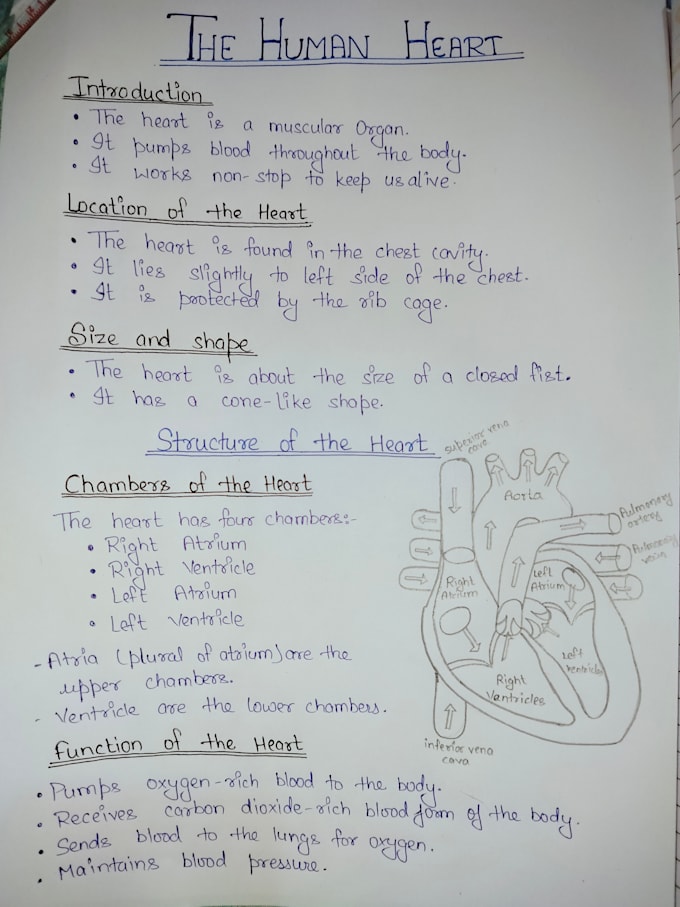 THE HUMAN HEART
Introduction
• The heart is a muscular Organ.
• It pumps blood throughout the body.
• It works non-stop to keep us alive.
Location of the Heart
• The heart is found in the chest cavity.
• It lies slightly to left side of the chest.
• It is protected by the rib cage.
Size and shape
• The heart is about the size of a closed fist.
• It has a cone-like shape.
Structure of the Heart
Chambers of the Heart
The heart has four chambers:-
• Right Atrium
• Right Ventricle
• Left Atrium
• Left Ventricle
- Atria (plural of atrium) are the
upper chambers.
- Ventricle are the lower chambers.
superior vena
cava
Aorta
Pulmonary
artery
Pulmonary
vein
Right
Atrium
Left
Atrium
Left
ventricle
Right
Ventricles
inferior vena
cava
Function of the Heart
• Pumps oxygen-rich blood to the body.
• Receives carbon dioxide-rich blood form of the body.
• Sends blood to the lungs for oxygen.
• Maintains blood pressure.